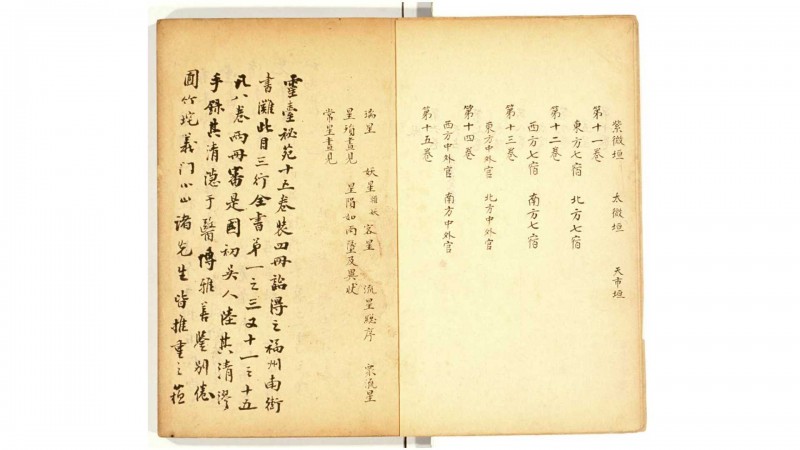 紫微垣 太微垣 天市垣
第十一卷
東方七宿 北方七宿
第十二卷
西方七宿 南方七宿
第十三卷
東方中外官 北方中外官
第十四卷
西方中外官 南方中外官
第十五卷
瑞星 妖星 客星 流星總序 眾流星
星晝見 星隕如雨墜及異狀
常星晝見
靈臺秘苑十五卷裝四冊詒得之福州南街
書灘此目三行全書第一之三又十一之十五
凡八卷兩冊審是國初吳人陸其清漻
手錄其清隱于醫博雅善鑒別倦
圃竹垞義門小山諸先生皆推重之